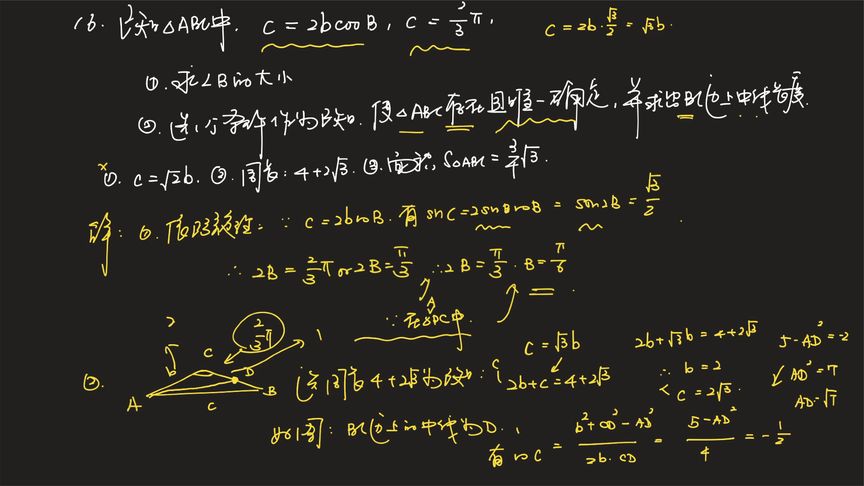 16. 已知△ABC中. c = 2bcosB, C = 2/3 π. c = 2b·√3/2 = √3b.
①. 求∠B的大小
②. 选一个条件作为已知. 使△ABC存在且唯一确定, 并求出BC边上中线长度.
①. c = √2b. ②. 周长: 4+2√3. ③. 面积, S△ABC = 3/4 √3.
解: ①. ∵ c = 2bcosB. 有 sinC = 2sinBcosB = sin2B = √3/2
∴ 2B = 2/3 π or 2B = π/3 ∴ 2B = π/3. B = π/6
∵ 在△ABC中.
②. 选周长4+2√3为已知: c = √3b
2b+c = 4+2√3
2b+√3b = 4+2√3
∴ b = 2
c = 2√3.
5-AD² = -2
AD² = 7
AD = √7
2 2/3 π 1
A b C D B c
如图: BC边上的中线为D.
有 cosC = (b²+CD²-AD²)/(2b·CD) = (5-AD²)/4 = -1/2